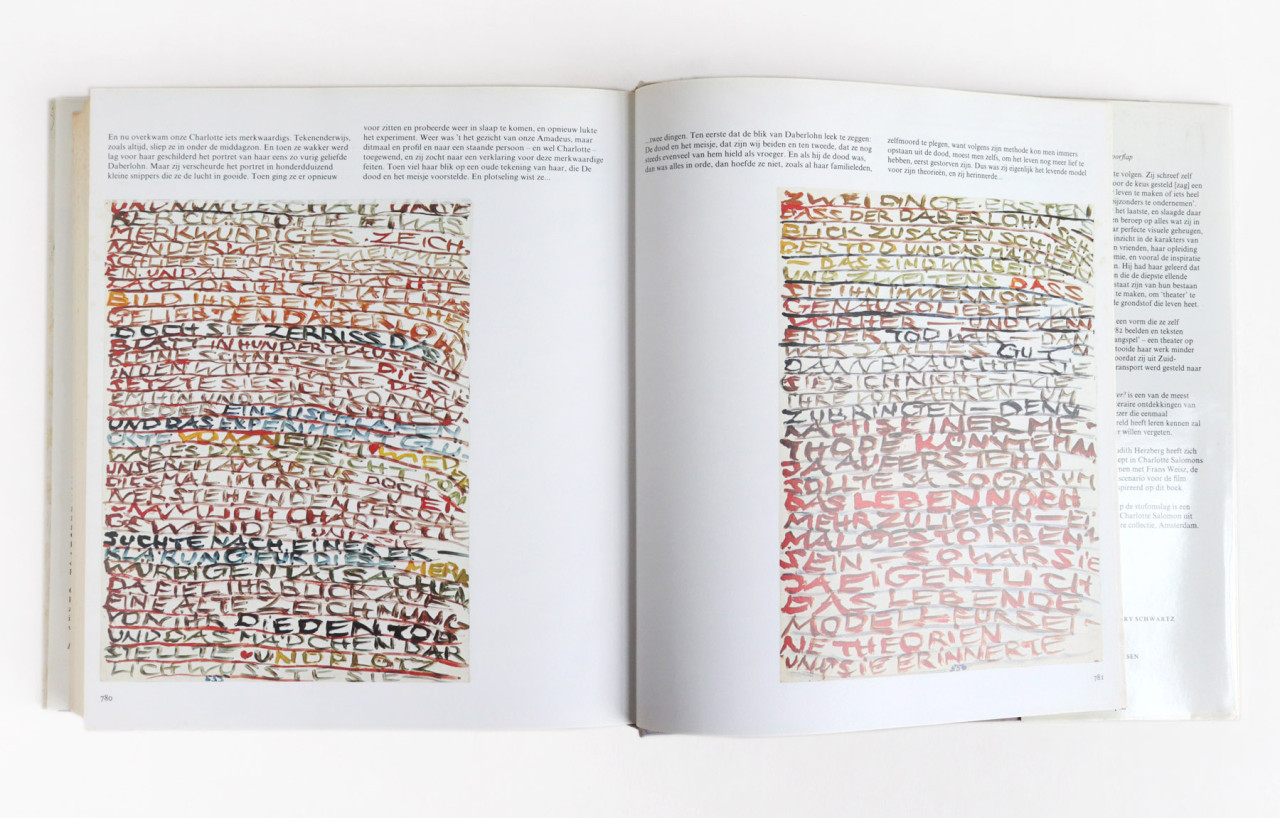 En nu overkwam onze Charlotte iets merkwaardigs. Tekenenderwijs,
zoals altijd, sliep ze in onder de middagzon. En toen ze wakker werd
lag voor haar geschilderd het portret van haar eens zo vurig geliefde
Daberlohn. Maar zij verscheurde het portret in honderdduizend
kleine snippers die ze de lucht in gooide. Toen ging ze er opnieuw
voor zitten en probeerde weer in slaap te komen, en opnieuw lukte
het experiment. Weer was 't het gezicht van onze Amadeus, maar
ditmaal en profil en naar een staande persoon – en wel Charlotte –
toegewend, en zij zocht naar een verklaring voor deze merkwaardige
feiten. Toen viel haar blik op een oude tekening van haar, die De
dood en het meisje voorstelde. En plotseling wist ze...
UND NUN GESCHAH UNSE
RER CHARLOTTE ETWAS
MERKWÜRDIGES. ZEICH
NENDERWEISE
EIN. UND ALS SIE
LAG VOR IHR GEMALT DAS
BILD IHRES EINST
GELIEBTEN DABERLOHN
DOCH SIE ZERRISS DAS
BLATT IN HUNDERTTAUSEND
KLEINE SCHNITZEL DIE SIE
IN DEN WIND
SETZTE SIE SICH
WIEDER EINZUSCHLAFEN
UND DAS EXPERIMENT GL
ÜCKTE VON NEUEM. WIED
WAR ES DAS GESICHT VON
UNSEREM AMADEUS
DIESMAL IM PROFIL DOCH
NER STEHENDEN PERSON
– NÄMLICH CHARLOTTE
GEWENDET UND SIE
SUCHTE NACH EINES ER –
KLÄRUNG DIESER MERK
WÜRDIGEN TATSACHEN
DA FIEL IHR BLICK AUF
EINE ALTE ZEICHNUNG
VON IHR DIE DEN TOD
UND DAS MÄDCHEN DAR
STELLTE UND PLÖTZ
LICH WUSSTE SIE
780
...twee dingen. Ten eerste dat de blik van Daberlohn leek te zeggen:
De dood en het meisje, dat zijn wij beiden en ten tweede, dat ze nog
steeds evenveel van hem hield als vroeger. En als hij de dood was,
dan was alles in orde, dan hoefde ze niet, zoals al haar familieleden,
zelfmoord te plegen, want volgens zijn methode kon men immers
opstaan uit de dood, moest men zelfs, om het leven nog meer lief te
hebben, eerst gestorven zijn. Dus was zij eigenlijk het levende model
voor zijn theorieën, en zij herinnerde...
ZWEI DINGE. ERSTEN
DASS DER DABERLOHN SCH
BLICK ZU SAGEN SCHIEN
DER TOD UND DAS MÄDCHEN
– DAS SIND WIR BEIDEN
UND ZWEITENS DASS
SIE IHN IMMER NOCH
GENAUSO LIEBTE WIE
VORHER – UND WENN
ER DER TOD WAR DAN
WAR JA ALLES GUT
DANN BRAUCHTE SIE
SICH NICHT WIE
IHRE VORFAHREN UM
ZUBRINGEN – DENN
NACH SEINER ME –
THODE KONNTE MAN
JA AUFERSTEHN
SOLLTE SOGAR UM
DAS LEBEN NOCH
MEHR ZU LIEBEN – EIN
MAL GESTORBEN
SEIN – SO WAR SIE
DA EIGENTLICH
DAS LEBENDE
MODELL FÜR SEI –
NE THEORIEN
UND SIE ERINNERTE
781
te volgen. Zij schreef zelf
voor de keus gesteld [zag] een
leven te maken of iets heel
bijzonders te ondernemen'.
het laatste, en slaagde daar
een beroep op alles wat zij in
haar perfecte visuele geheugen,
inzicht in de karakters van
en vrienden, haar opleiding
en vooral de inspiratie
Hij had haar geleerd dat
die de diepste ellende
staat zijn van hun bestaan
te maken, om 'theater' te
de grondstof die leven heet.
een vorm die ze zelf
beelden en teksten
– een theater op
haar werk minder
voordat zij uit Zuid-
transport werd gesteld naar
is een van de meest
literaire ontdekkingen van
die eenmaal
heeft leren kennen zal
willen vergeten.
Judith Herzberg heeft zich
in Charlotte Salomons
samen met Frans Weisz, de
scenario voor de film
op dit boek.
de stofomslag is een
Charlotte Salomon uit
collectie, Amsterdam.
GARY SCHWARTZ